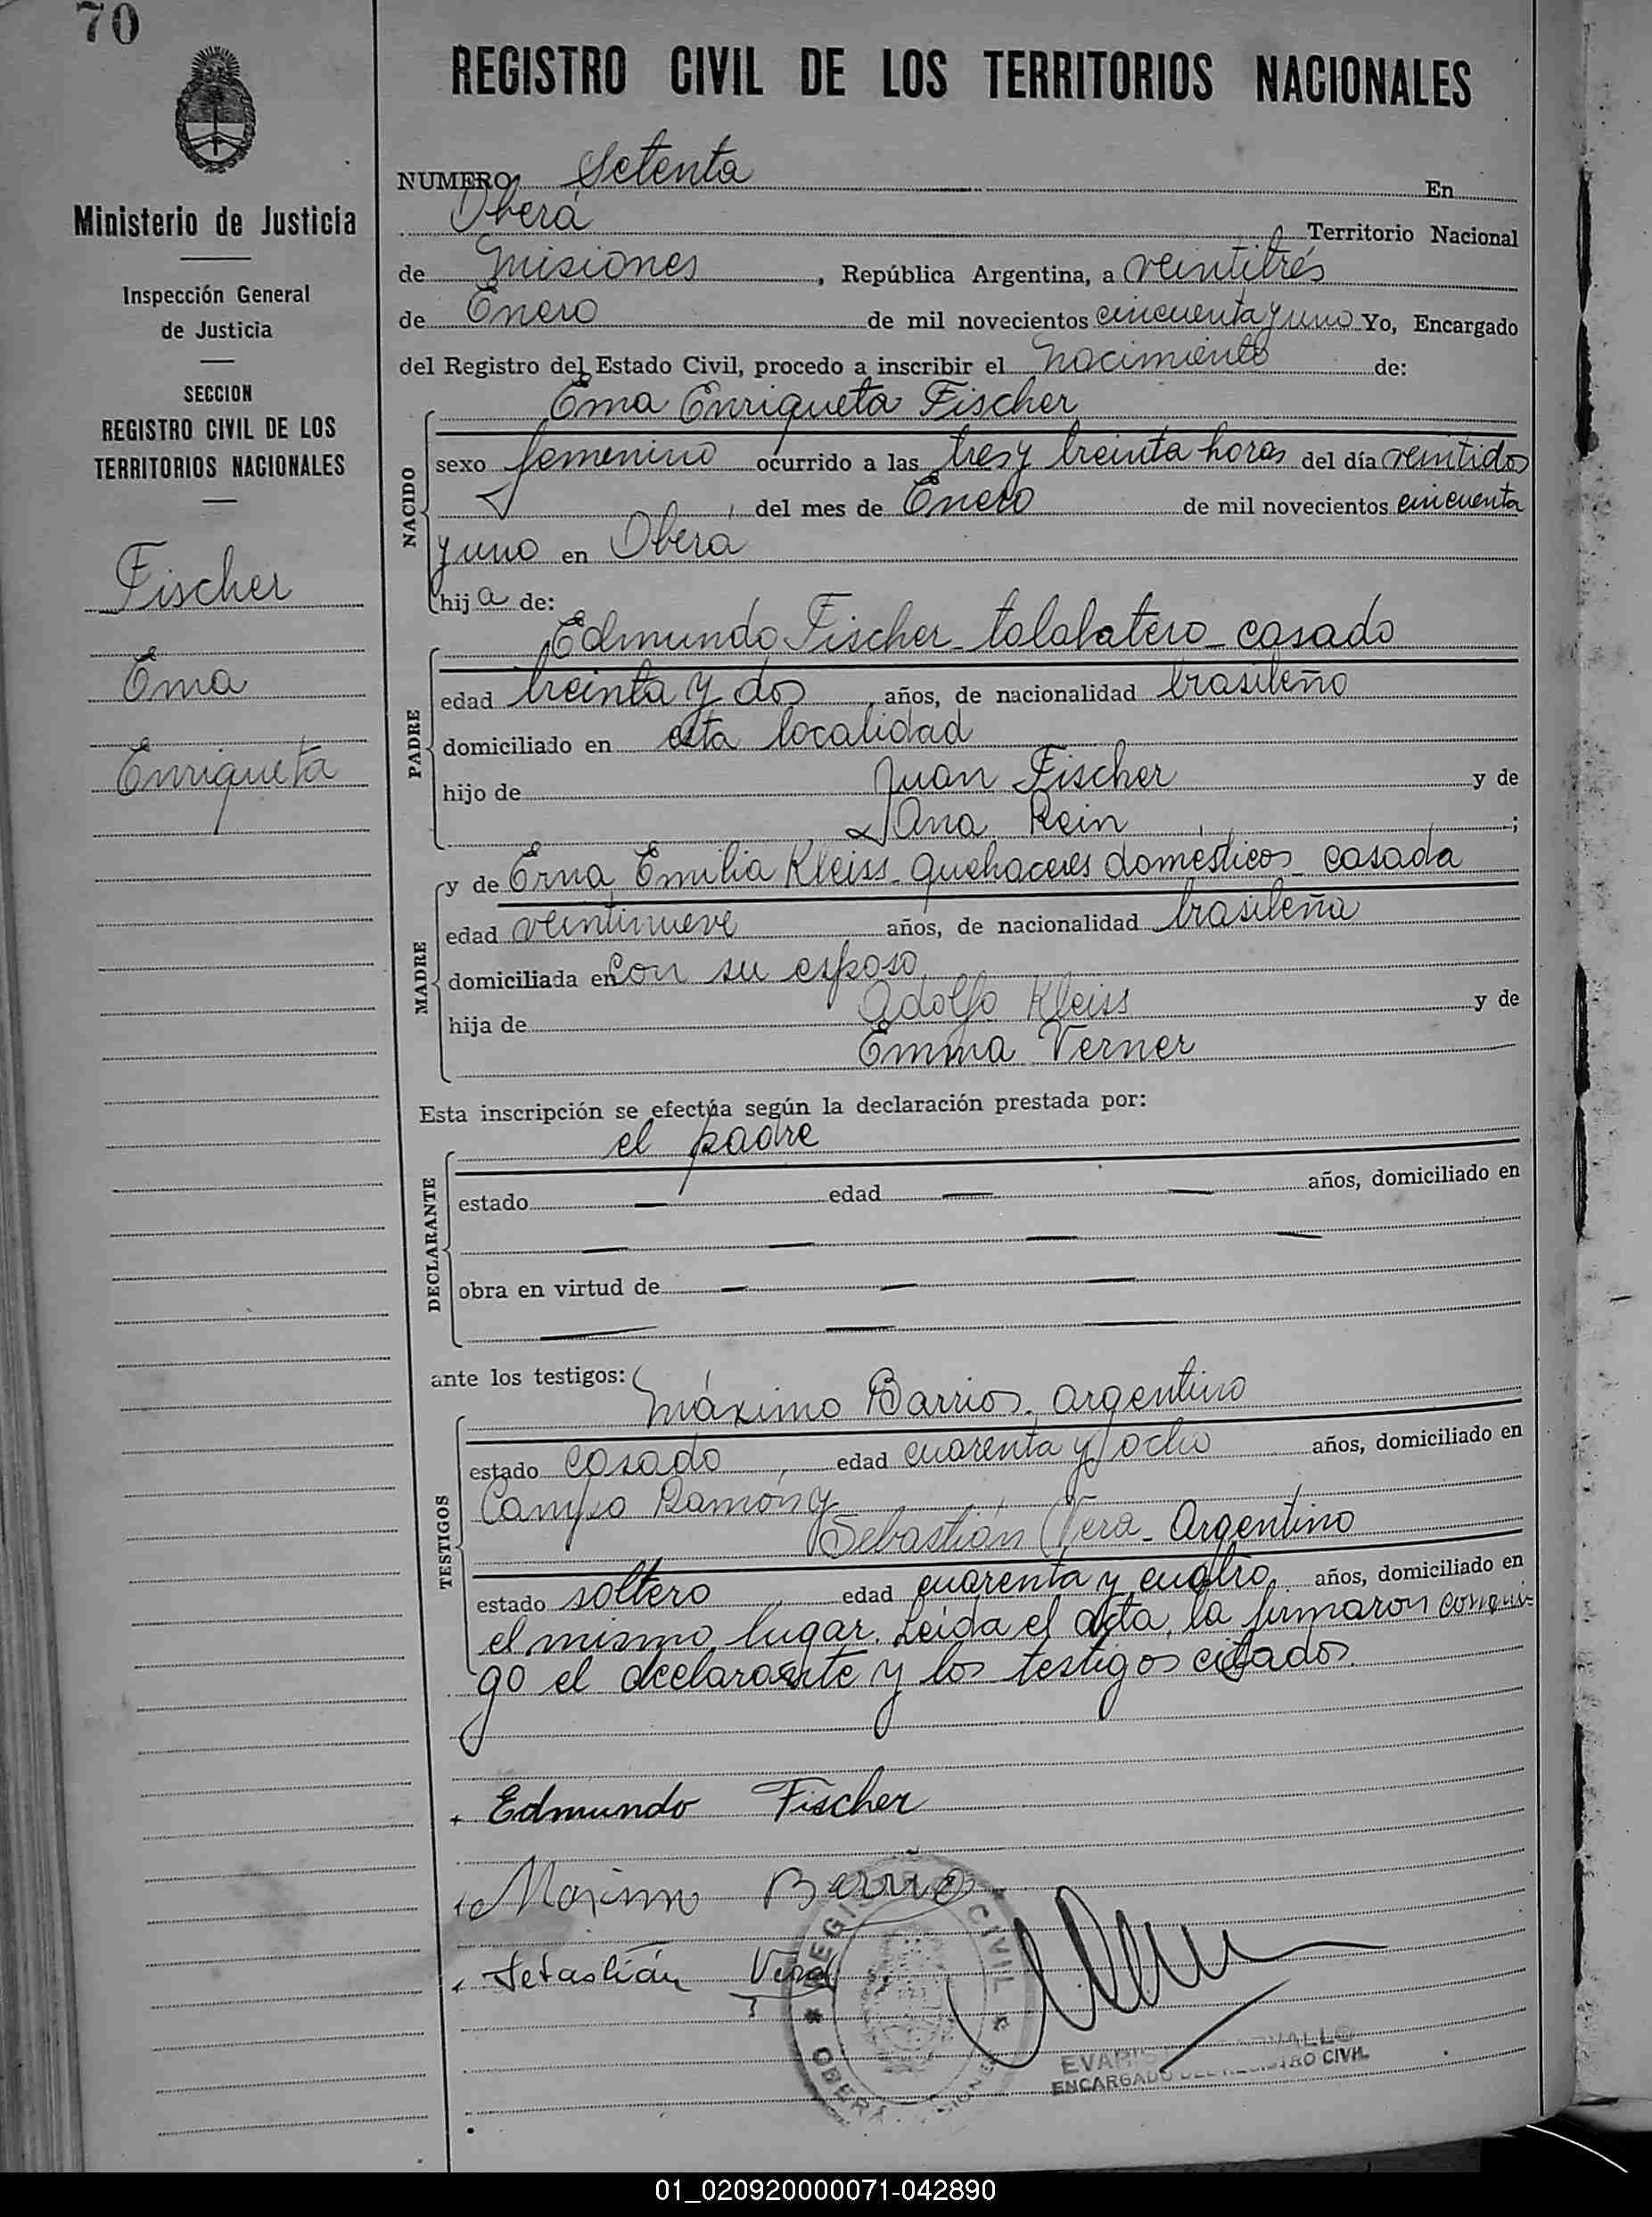 70
REGISTRO CIVIL DE LOS TERRITORIOS NACIONALES
Ministerio de Justicia
Inspección General
de Justicia
SECCION
REGISTRO CIVIL DE LOS
TERRITORIOS NACIONALES
Fischer
Ema
Enriqueta
NUMERO Setenta En
Oberá Territorio Nacional
de Misiones, República Argentina, a veintitrés
de Enero de mil novecientos cincuenta y uno Yo, Encargado
del Registro del Estado Civil, procedo a inscribir el nacimiento de:
NACIDO
Ema Enriqueta Fischer
sexo femenino ocurrido a las tres y treinta horas del día veintidos
del mes de Enero de mil novecientos cincuenta
y uno en Oberá
hija de:
PADRE
Edmundo Fischer - talabatero - casado
edad treinta y dos años, de nacionalidad brasileño
domiciliado en esta localidad
hijo de Juan Fischer y de
Ana Rein ;
MADRE
y de Erna Emilia Kleiss - quehaceres domésticos - casada
edad veintinueve años, de nacionalidad brasileña
domiciliada en con su esposo
hija de Adolfo Kleiss y de
Emma Verner
Esta inscripción se efectúa según la declaración prestada por:
DECLARANTE
el padre
estado — edad — — años, domiciliado en
— — — —
obra en virtud de — — —
— — —
ante los testigos:
TESTIGOS
Máximo Barrios - argentino
estado casado, edad cuarenta y ocho años, domiciliado en
Campo Ramón y
Sebastián Vera - Argentino
estado soltero, edad cuarenta y cuatro años, domiciliado en
el mismo lugar. Leída el acta, la firmaron conmi=
go el declarante y los testigos citados.
Edmundo Fischer
Maximo Barrios
Sebastián Vera
REGISTRO CIVIL
OBERA
ENCARGADO DEL REGISTRO CIVIL
01_020920000071-042890